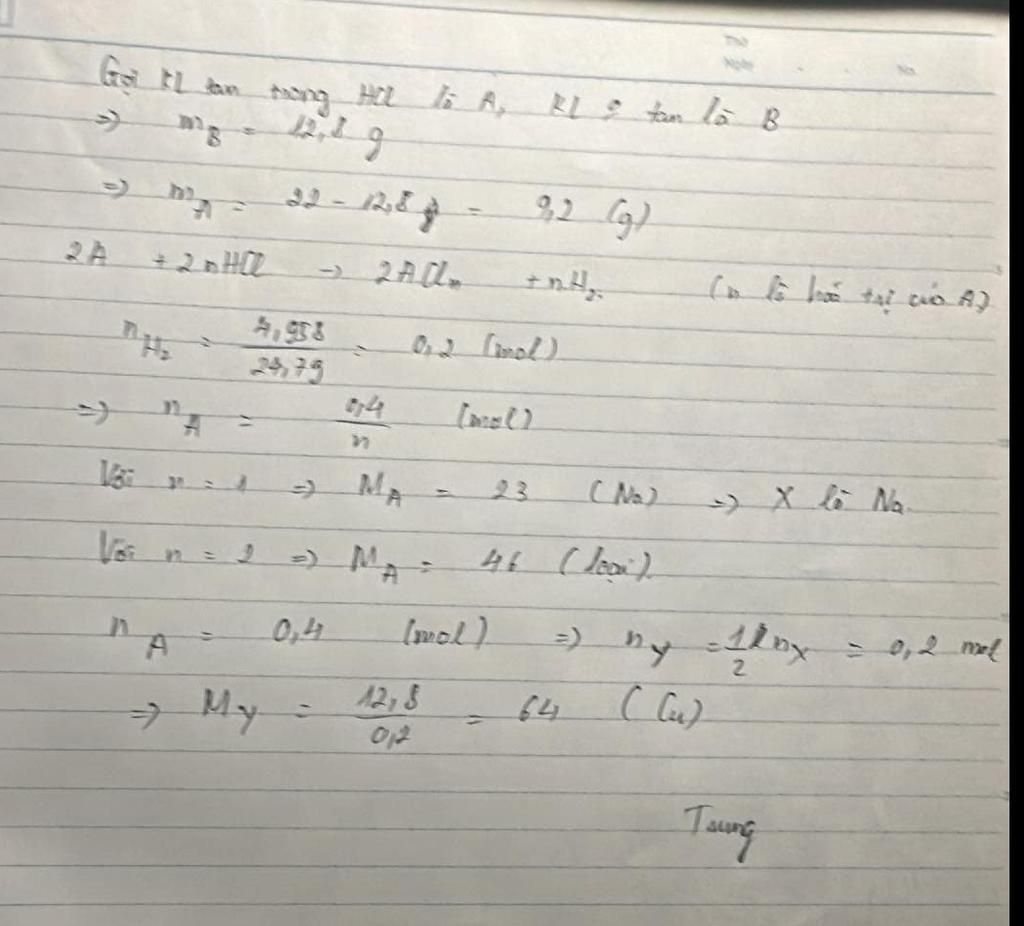 Thứ
Ngày . . No
Gọi KL tan trong HCl là A, KL o tan là B
=> mB = 12,8 g
=> mA = 22 - 12,8 = 9,2 (g)
2A + 2nHCl -> 2ACln + nH2. (n là hoá trị của A)
nH2 = 4,958/24,79 = 0,2 (mol)
=> nA = 0,4/n (mol)
Với n = 1 => MA = 23 (Na) => X là Na.
Với n = 2 => MA = 46 (loại).
nA = 0,4 (mol) => ny = 1/2 nx = 0,2 mol
=> My = 12,8/0,2 = 64 (Cu)
Trung